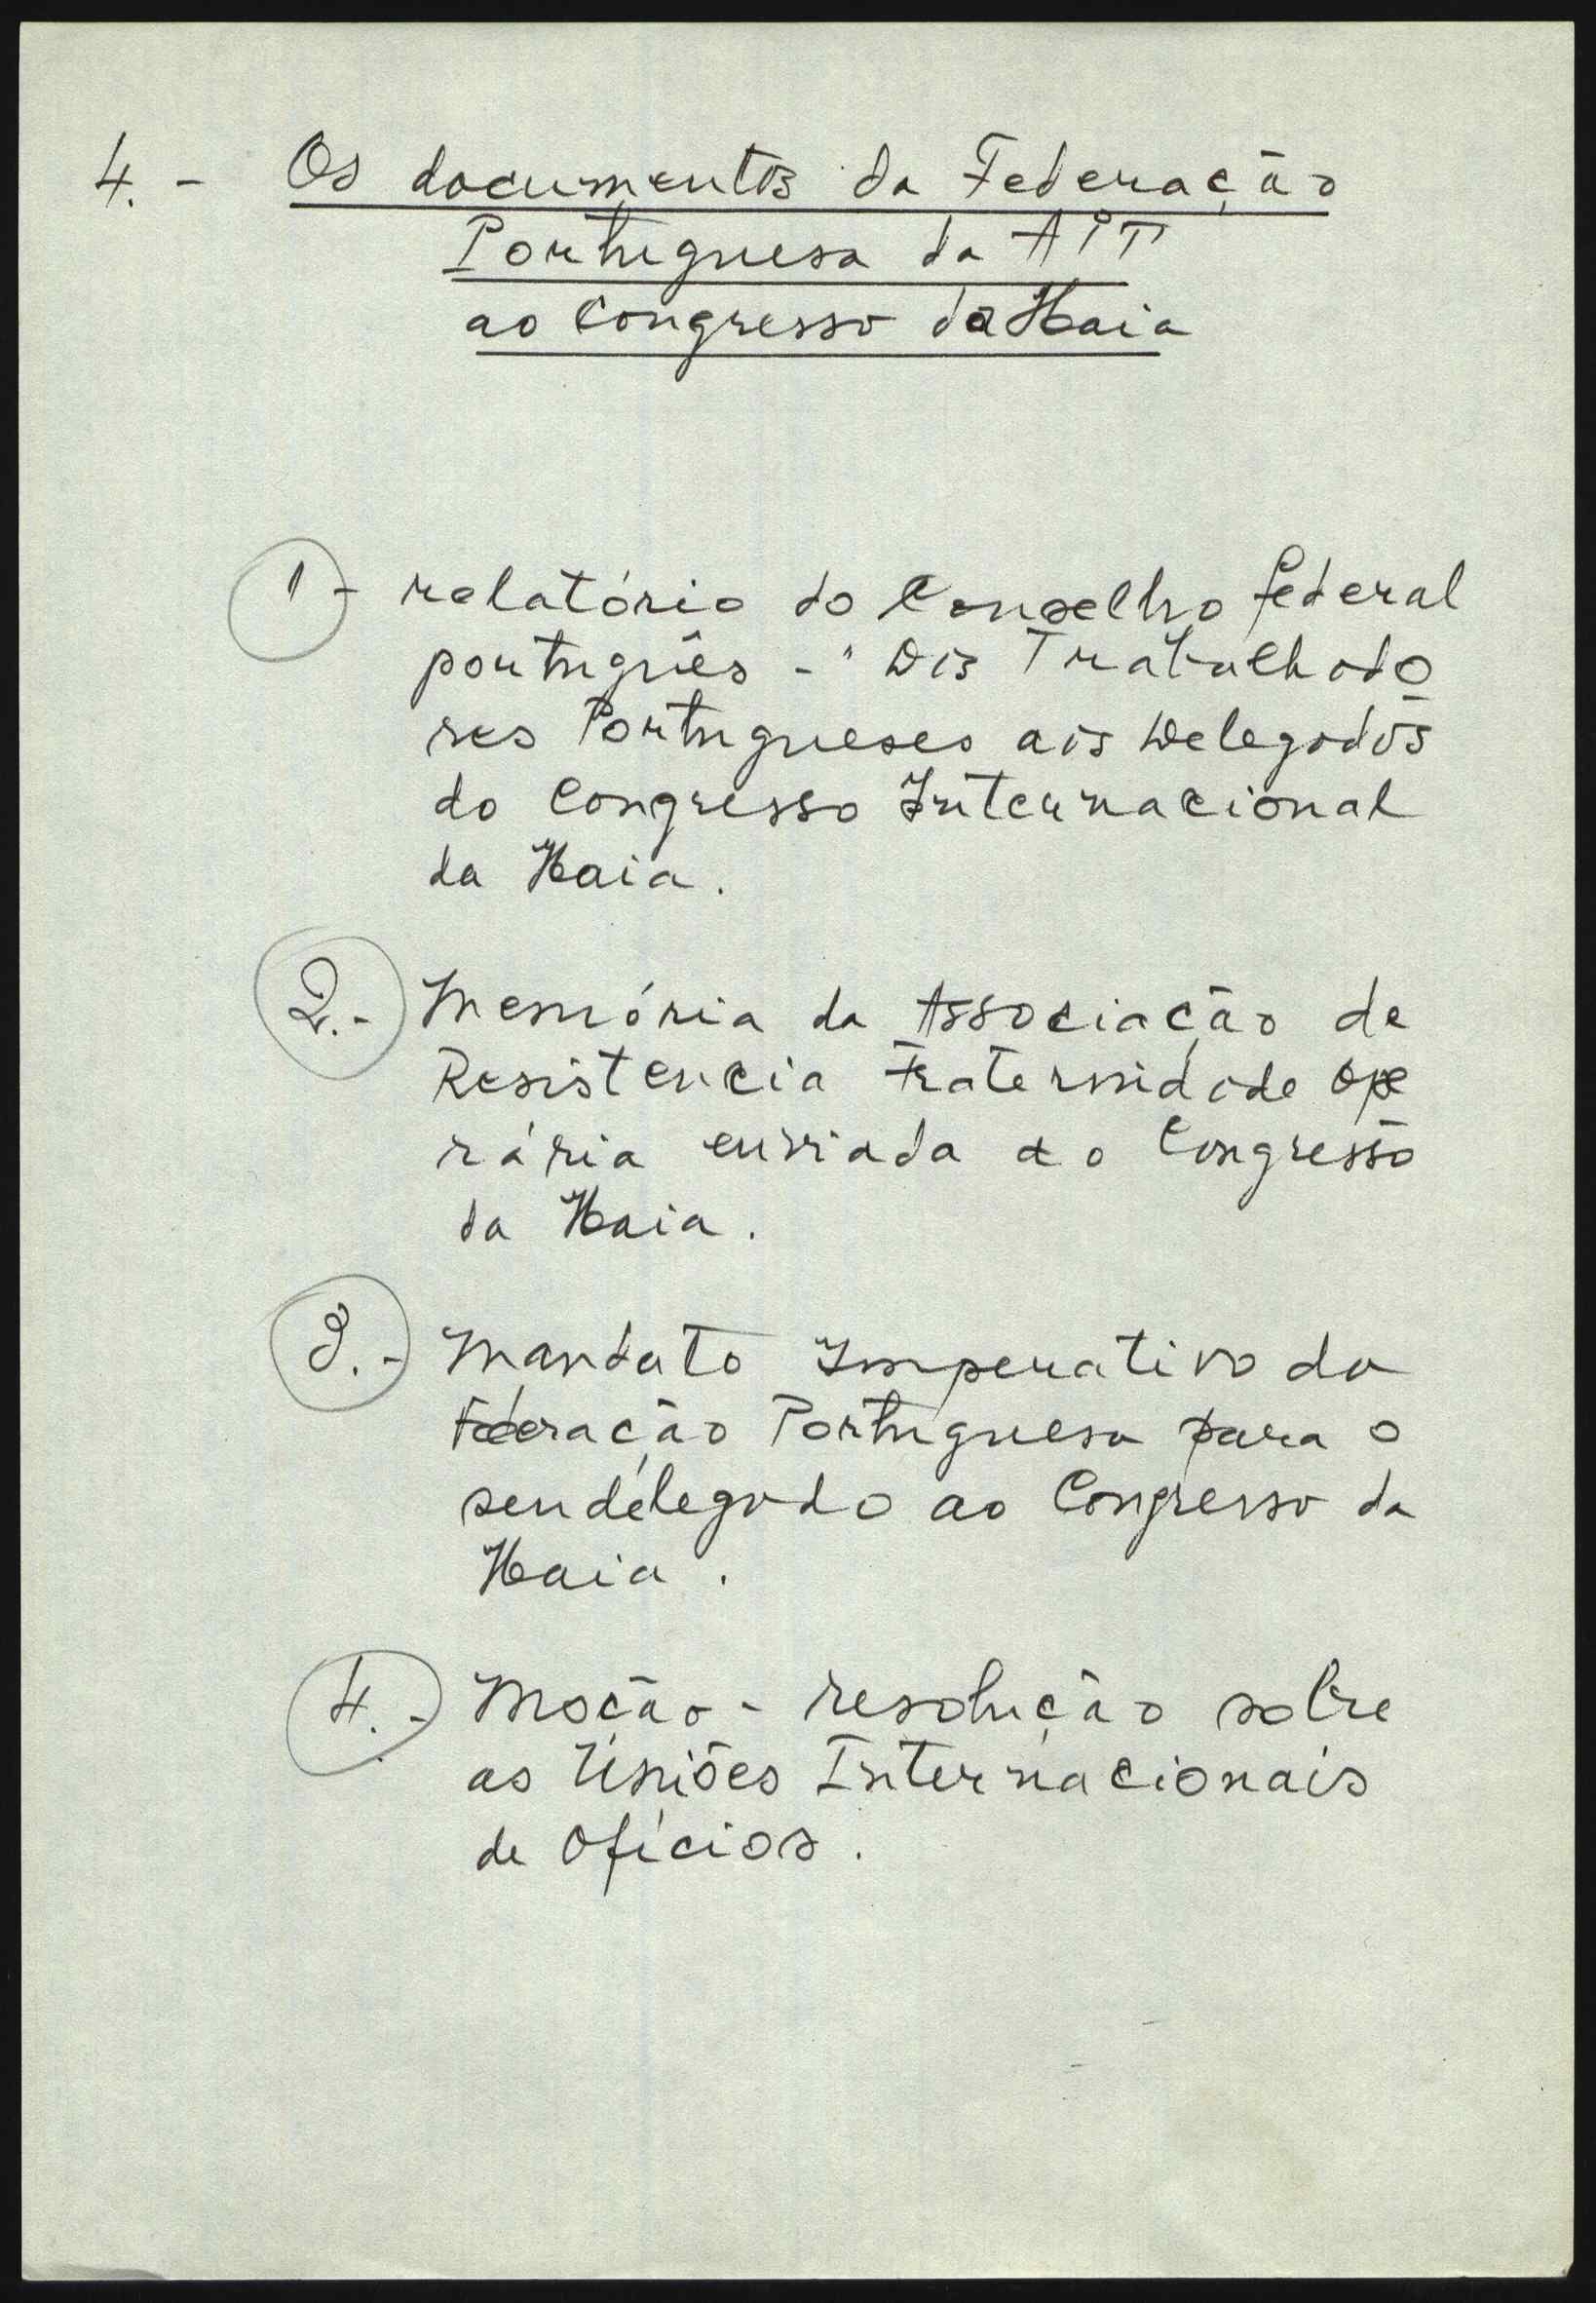 4. - Os documentos da Federação
Portuguesa da AIT
ao Congresso da Haia
1 - relatório do Conselho federal
português - "Dos Trabalhado
res Portugueses aos Delegados
do Congresso Internacional
da Haia.
2.- Memória da Associação de
Resistencia Fraternidade Ope
rária enviada ao Congresso
da Haia.
3.- Mandato Imperativo da
Federação Portuguesa para o
seu delegado ao Congresso da
Haia.
4.- Moção - resolução sobre
as Uniões Internacionais
de Ofícios.